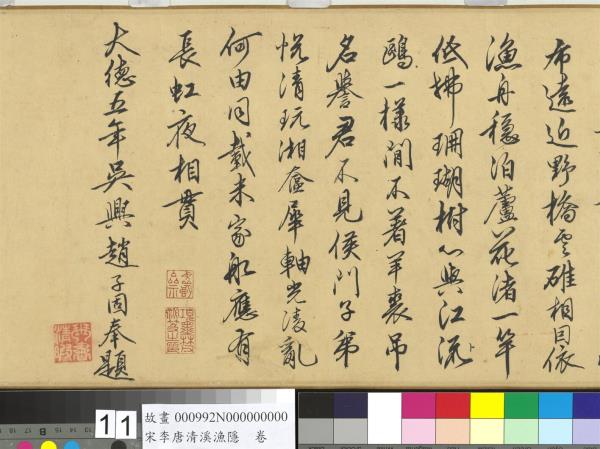 布遠近野橋雲碓相因依
漁舟穩泊蘆花渚一竿
低拂珊瑚樹心與江流
鷗一樣閒不著羊裘吊
名譽君不見侯門子弟
悅清玩湘奩犀軸光凌亂
何由同載米家船應有
長虹夜相貫
大德五年吳興趙子固奉題
11
故畫 000992N000000000
宋李唐清溪漁隱 卷